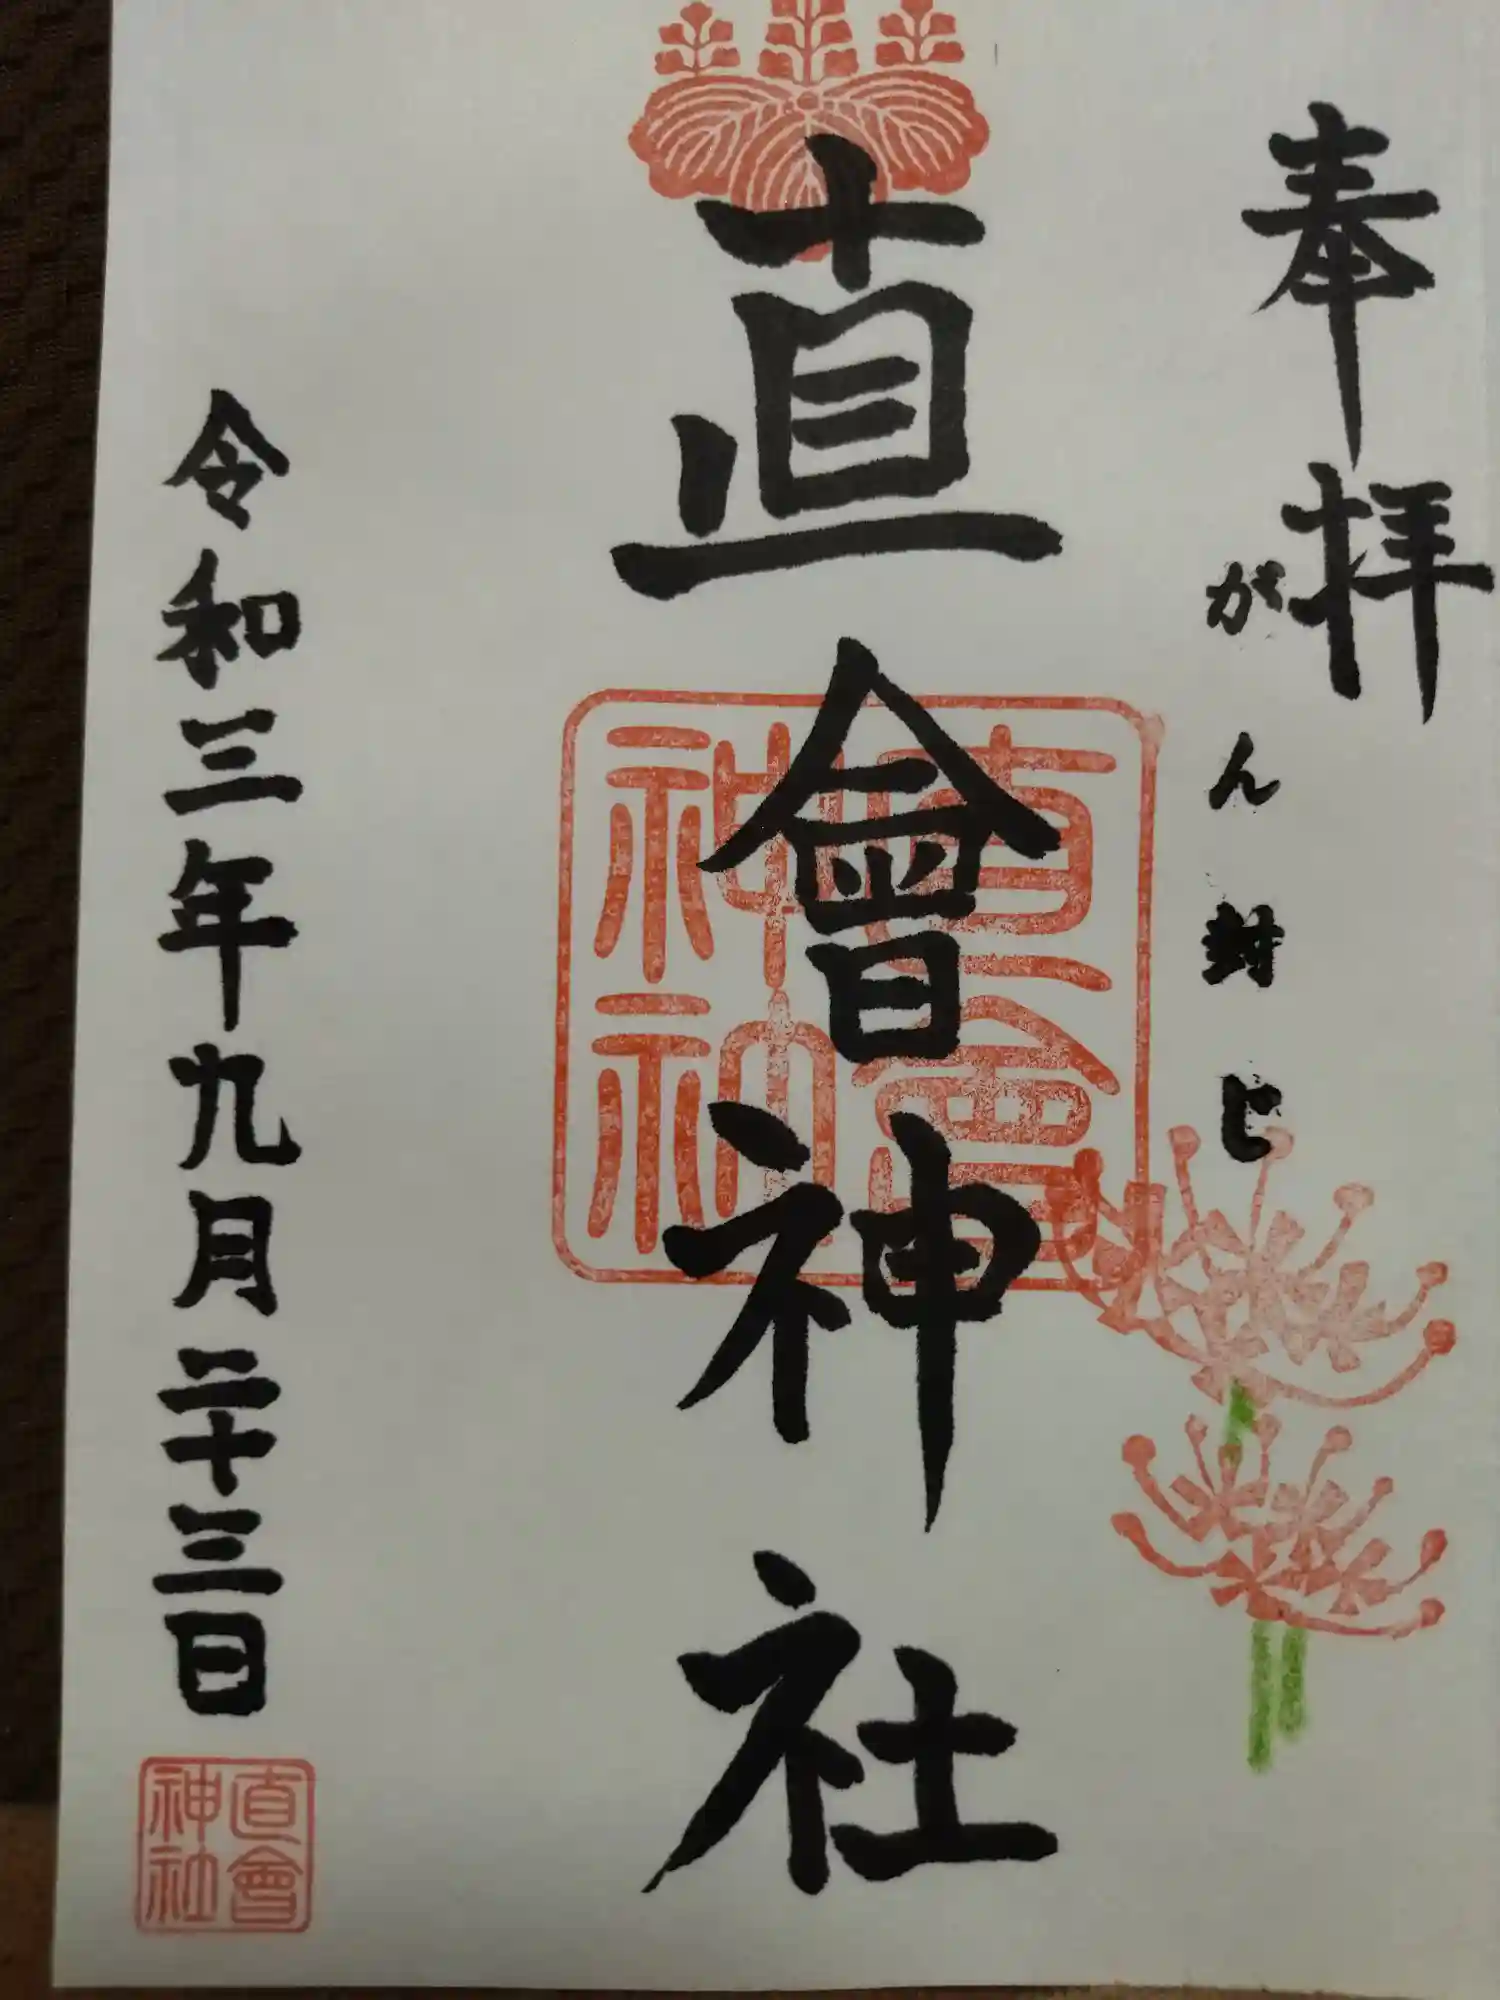 奉拝
がん封じ
直會神社
令和三年九月二十三日
直會
神社